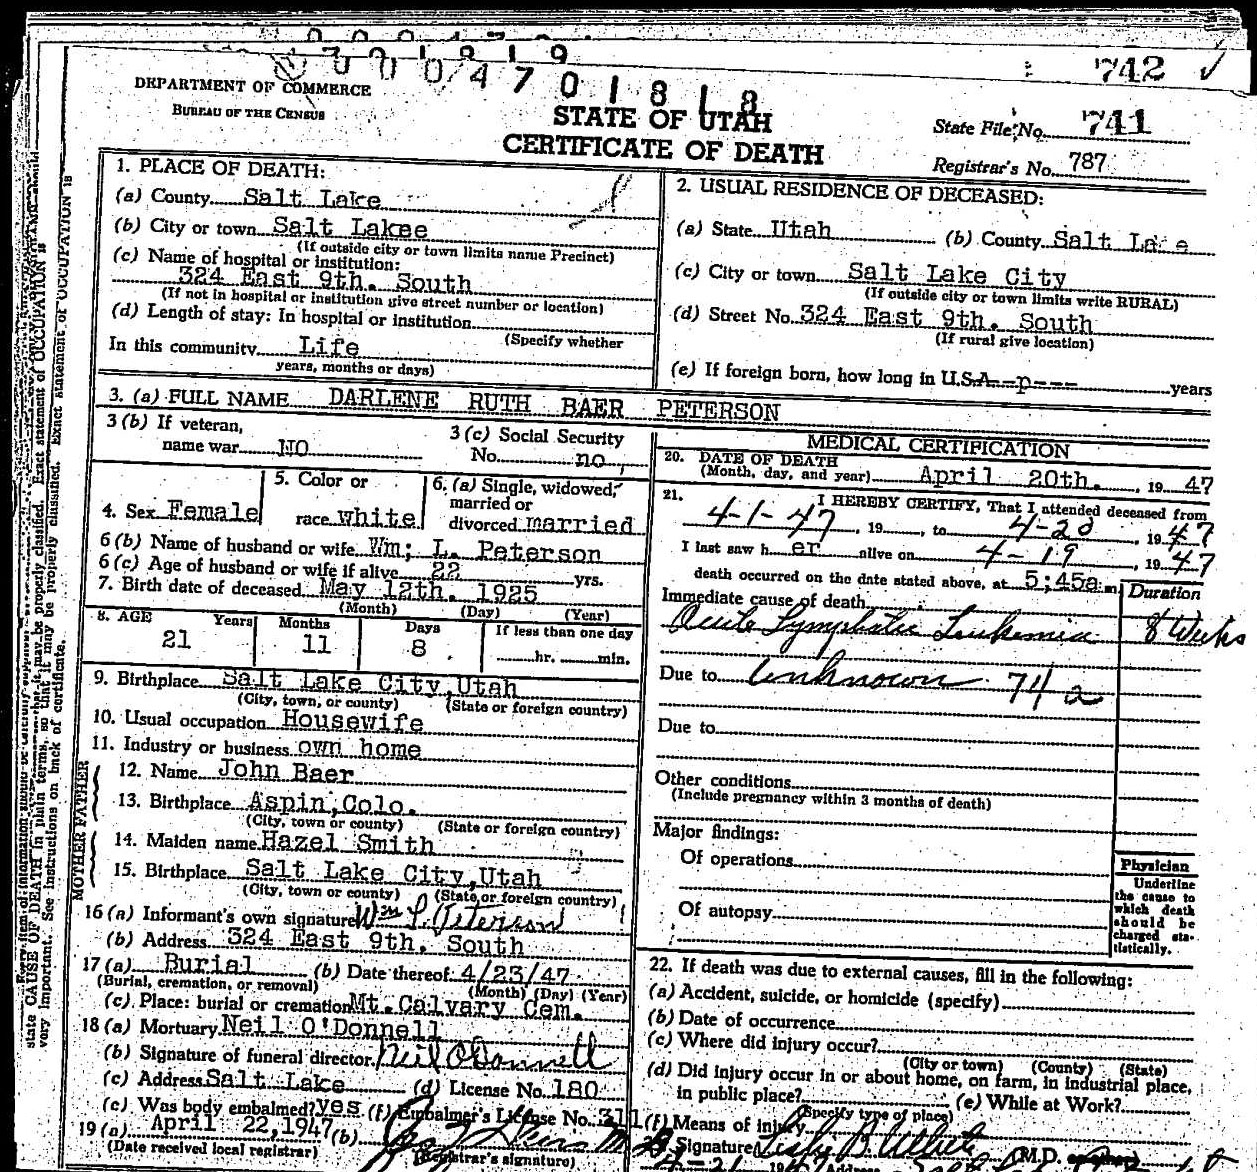 742
0 0 0 4 7 0 1 8 1 8
DEPARTMENT OF COMMERCE
BUREAU OF THE CENSUS
STATE OF UTAH
CERTIFICATE OF DEATH
State File No. 741
Registrar's No. 787
1. PLACE OF DEATH:
(a) County Salt Lake
(b) City or town Salt Lakee
(If outside city or town limits name Precinct)
(c) Name of hospital or institution:
324 East 9th. South
(If not in hospital or institution give street number or location)
(d) Length of stay: In hospital or institution
(Specify whether
In this community Life
years, months or days)
2. USUAL RESIDENCE OF DECEASED:
(a) State Utah (b) County Salt Lake
(c) City or town Salt Lake City
(If outside city or town limits write RURAL)
(d) Street No. 324 East 9th. South
(If rural give location)
(e) If foreign born, how long in U.S.A. --p--- years
3. (a) FULL NAME DARLENE RUTH BAER PETERSON
3 (b) If veteran,
name war NO
3 (c) Social Security
No. no,
4. Sex Female
5. Color or
race white
6. (a) Single, widowed,
married or
divorced married
6 (b) Name of husband or wife Wm; L. Peterson
6 (c) Age of husband or wife if alive 22 yrs.
7. Birth date of deceased May 12th. 1925
(Month) (Day) (Year)
8. AGE Years Months Days If less than one day
21 11 8 hr. min.
9. Birthplace Salt Lake City, Utah
(City, town, or county) (State or foreign country)
10. Usual occupation Housewife
11. Industry or business own home
FATHER
12. Name John Baer
13. Birthplace Aspin, Colo.
(City, town or county) (State or foreign country)
MOTHER
14. Maiden name Hazel Smith
15. Birthplace Salt Lake City, Utah
(City, town or county) (State or foreign country)
16 (a) Informant's own signature Wm L. Peterson
(b) Address 324 East 9th. South
17 (a) Burial (b) Date thereof 4/23/47
(Burial, cremation, or removal) (Month) (Day) (Year)
(c) Place: burial or cremation Mt. Calvary Cem.
18 (a) Mortuary Neil O'Donnell
(b) Signature of funeral director Neil O'Donnell
(c) Address Salt Lake (d) License No. 180
(e) Was body embalmed? yes (f) Embalmer's License No. 311
19 (a) April 22, 1947 (b)
(Date received local registrar) (Registrar's signature)
MEDICAL CERTIFICATION
20. DATE OF DEATH
(Month, day, and year) April 20th. , 19 47
21. I HEREBY CERTIFY, That I attended deceased from
4-1-47, 19 , to 4-20, 19 47
I last saw h er alive on 4-19, 19 47
death occurred on the date stated above, at 5;45a m
Duration
Immediate cause of death
Acute Lymphatic Leukemia 8 Weeks
Due to Unknown 74 a
Due to
Other conditions
(Include pregnancy within 3 months of death)
Major findings:
Of operations
Of autopsy
Physician
Underline
the cause to
which death
should be
charged sta-
tistically.
22. If death was due to external causes, fill in the following:
(a) Accident, suicide, or homicide (specify)
(b) Date of occurrence
(c) Where did injury occur?
(City or town) (County) (State)
(d) Did injury occur in or about home, on farm, in industrial place,
in public place? (e) While at Work?
(Specify type of place)
(f) Means of injury
Signature M.D.
state CAUSE OF DEATH in plain terms, so that it may be properly classified. Exact statement of OCCUPATION is
very important. See instructions on back of certificate.